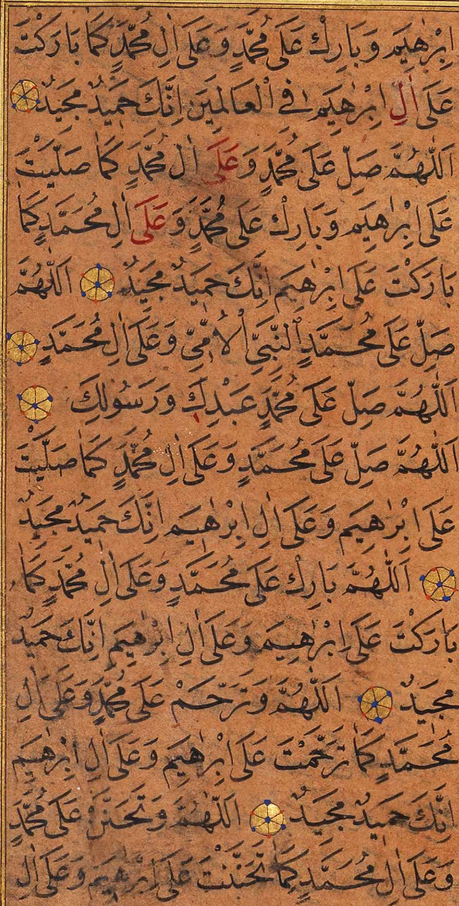 اِبْرٰهِيمَ وَبَارِكْ عَلَى مُحَمَّدٍ وَعَلَى اٰلِ مُحَمَّدٍ كَمَا بَارَكْتَ
عَلَى اٰلِ اِبْرٰهِيمَ فِى الْعَالَمِينَ اِنَّكَ حَمِيدٌ مَجِيدٌ
اَللّٰهُمَّ صَلِّ عَلَى مُحَمَّدٍ وَعَلَى اٰلِ مُحَمَّدٍ كَمَا صَلَّيْتَ
عَلَى اِبْرٰهِيمَ وَبَارِكْ عَلَى مُحَمَّدٍ وَعَلَى اٰلِ مُحَمَّدٍ كَمَا
بَارَكْتَ عَلَى اِبْرٰهِيمَ اِنَّكَ حَمِيدٌ مَجِيدٌ اَللّٰهُمَّ
صَلِّ عَلَى مُحَمَّدٍ النَّبِيِّ الْاُمِّيِّ وَعَلَى اٰلِ مُحَمَّدٍ
اَللّٰهُمَّ صَلِّ عَلَى مُحَمَّدٍ عَبْدِكَ وَرَسُولِكَ
اَللّٰهُمَّ صَلِّ عَلَى مُحَمَّدٍ وَعَلَى اٰلِ مُحَمَّدٍ كَمَا صَلَّيْتَ
عَلَى اِبْرٰهِيمَ وَعَلَى اٰلِ اِبْرٰهِيمَ اِنَّكَ حَمِيدٌ مَجِيدٌ
اَللّٰهُمَّ بَارِكْ عَلَى مُحَمَّدٍ وَعَلَى اٰلِ مُحَمَّدٍ كَمَا
بَارَكْتَ عَلَى اِبْرٰهِيمَ وَعَلَى اٰلِ اِبْرٰهِيمَ اِنَّكَ حَمِيدٌ
مَجِيدٌ اَللّٰهُمَّ وَتَرَحَّمْ عَلَى مُحَمَّدٍ وَعَلَى اٰلِ
مُحَمَّدٍ كَمَا تَرَحَّمْتَ عَلَى اِبْرٰهِيمَ وَعَلَى اٰلِ اِبْرٰهِيمَ
اِنَّكَ حَمِيدٌ مَجِيدٌ اَللّٰهُمَّ وَتَحَنَّنْ عَلَى مُحَمَّدٍ
وَعَلَى اٰلِ مُحَمَّدٍ كَمَا تَحَنَّنْتَ عَلَى اِبْرٰهِيمَ وَعَلَى اٰلِ